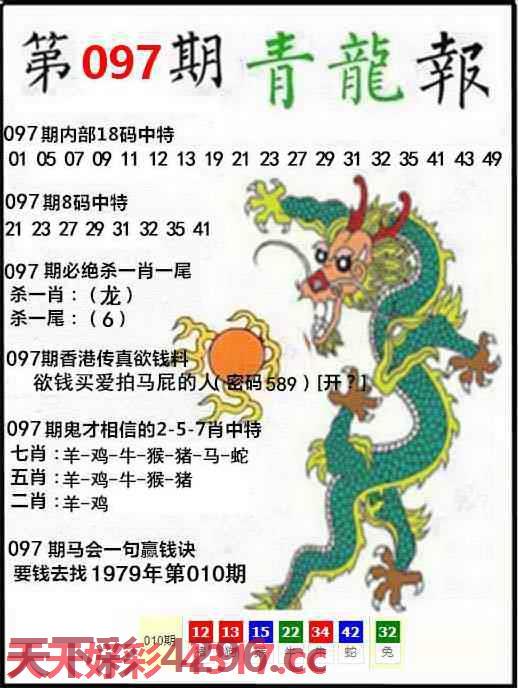 第097期 青龍報
097期内部18码中特
01 05 07 09 11 12 13 19 21 23 27 29 31 32 35 41 43 49
097期8码中特
21 23 27 29 31 32 35 41
097期必绝杀一肖一尾
杀一肖：（龙）
杀一尾：（6）
097期香港传真欲钱料
欲钱买爱拍马屁的人（密码589）[开？]
097期鬼才相信的2-5-7肖中特
七肖：羊-鸡-牛-猴-猪-马-蛇
五肖：羊-鸡-牛-猴-猪
二肖：羊-鸡
097期马会一句赢钱诀
要钱去找1979年第010期
010期 12 13 15 22 34 42 32
蛇 兔
天天好彩44396.cc